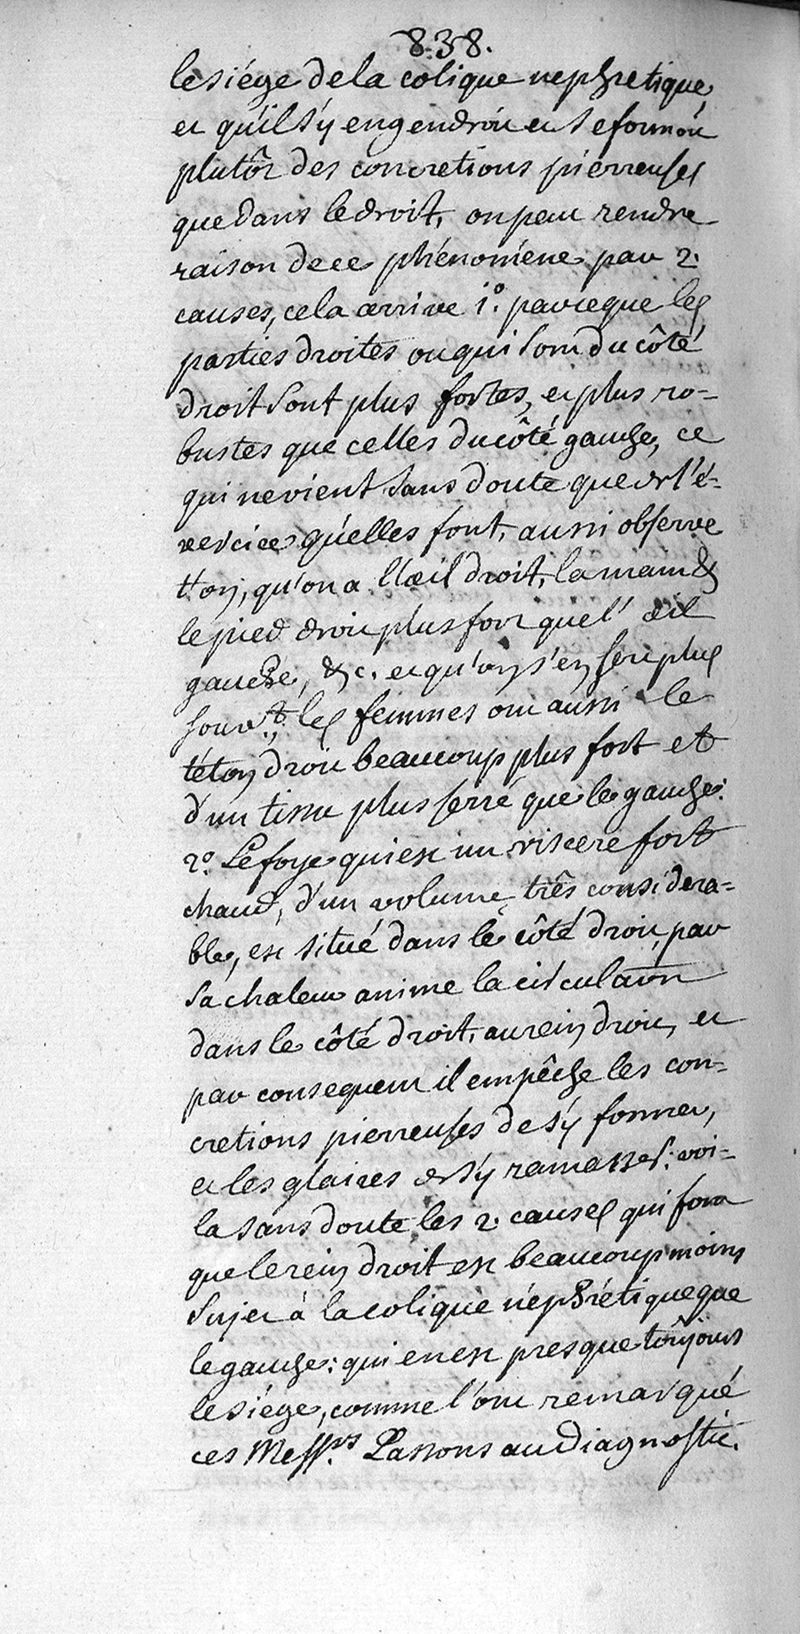 838.
le siége de la colique nephretique,
et qu'il s'y engendroit et se formoit
plutôt des concretions pierreuses
que dans le droit, on peut rendre
raison de ce phénomene par 2.
causes, cela arrive 1º. parceque les
parties droites ou qui sont du côté
droit sont plus fortes, et plus ro=
bustes que celles du côté gauche, ce
qui ne vient sans doute que de l'é-
xercice qu'elles font, aussi observe
t'on, qu'on a l'œil droit, la main &
le pied droit plus fort que l'œil
gauche, &c. et qu'on s'en sert plus
souv.t, les femmes ont aussi le
téton droit beaucoup plus fort et
d'un tissu plus serré que le gauche.
2º. Le foye qui est un viscere fort
chaud, d'un volume très considera=
ble, est situé dans le côté droit, par
sa chaleur anime la circulaõn
dans le côté droit, au rein droit, et
par consequent il empêche les con-
cretions pierreuses de s'y former,
et les glaires de s'y ramasser: voi-
la sans doute les 2. causes qui font
que le rein droit est beaucoup moins
sujet à la colique néphrétique que
le gauche: qui en est presque toûjours
le siége, comme l'ont remarqué
ces Mess.rs Passons au diagnostic.